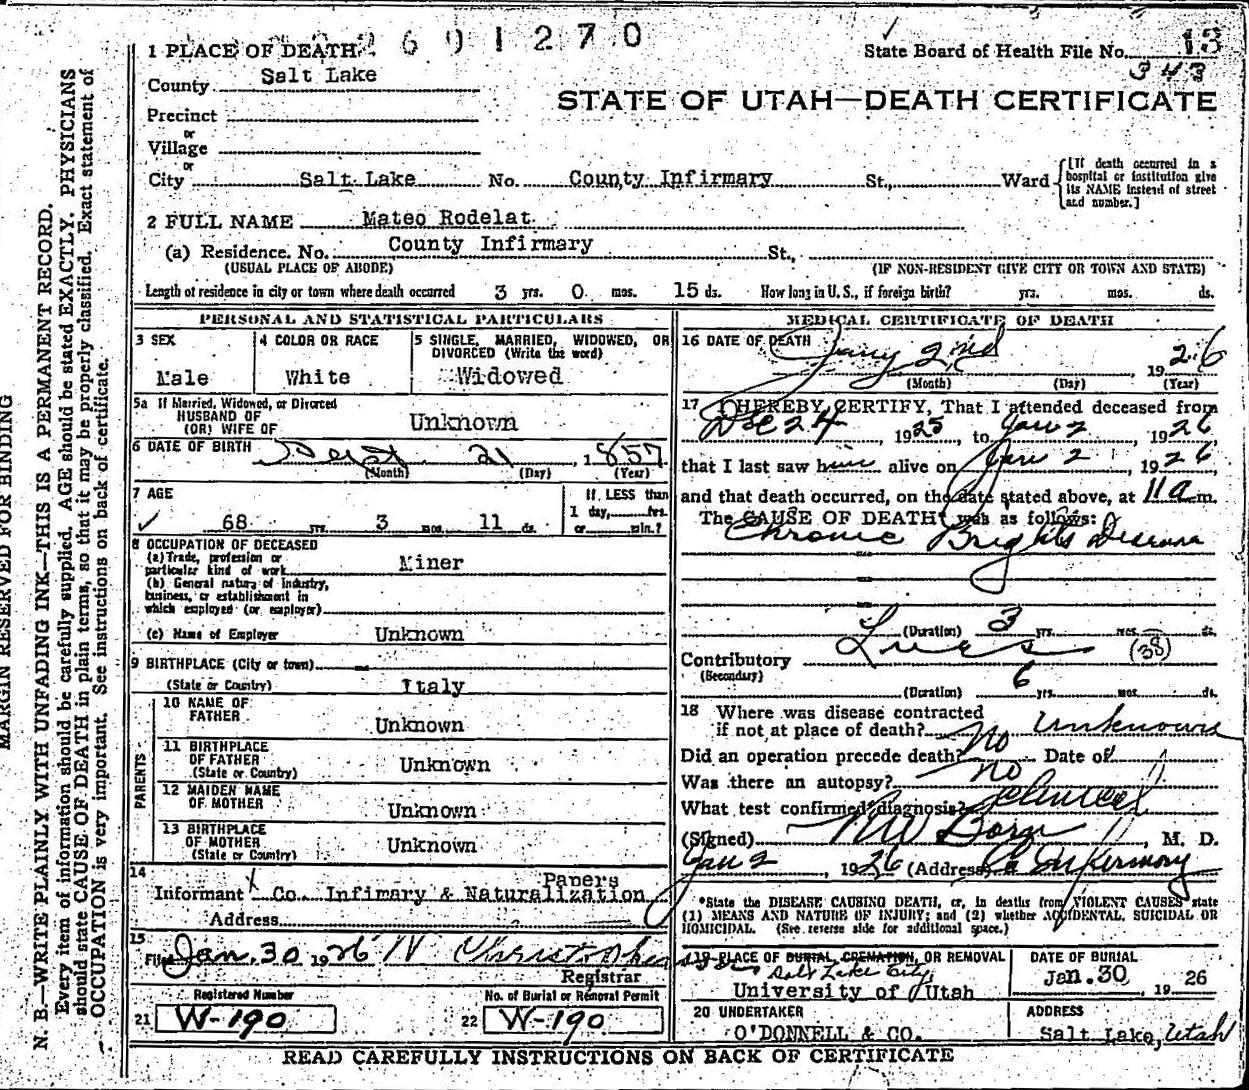 2601270
1 PLACE OF DEATH
State Board of Health File No. 13
343
County Salt Lake
STATE OF UTAH—DEATH CERTIFICATE
Precinct
or
Village
or
City Salt Lake No. County Infirmary St., Ward
[If death occurred in a hospital or institution give its NAME instead of street and number.]
2 FULL NAME Mateo Rodelat
(a) Residence. No. County Infirmary St.,
(USUAL PLACE OF ABODE) (IF NON-RESIDENT GIVE CITY OR TOWN AND STATE)
Length of residence in city or town where death occurred 3 yrs. 0 mos. 15 ds. How long in U. S., if foreign birth? yrs. mos. ds.
PERSONAL AND STATISTICAL PARTICULARS
3 SEX
Male
4 COLOR OR RACE
White
5 SINGLE, MARRIED, WIDOWED, OR DIVORCED (Write the word)
Widowed
5a If Married, Widowed, or Divorced
HUSBAND OF
(OR) WIFE OF Unknown
6 DATE OF BIRTH Sept 21, 1857
(Month) (Day) (Year)
7 AGE
✓ 68 yrs. 3 mos. 11 ds.
If LESS than
1 day, hrs.
or min.?
8 OCCUPATION OF DECEASED
(a) Trade, profession or
particular kind of work Miner
(b) General nature of industry,
business, or establishment in
which employed (or employer)
(c) Name of Employer Unknown
9 BIRTHPLACE (City or town)
(State or Country) Italy
PARENTS
10 NAME OF
FATHER Unknown
11 BIRTHPLACE
OF FATHER Unknown
(State or Country)
12 MAIDEN NAME
OF MOTHER Unknown
13 BIRTHPLACE
OF MOTHER Unknown
(State or Country)
14
Informant Co. Infimary & Naturalization Papers
Address
15
Filed Jan. 30 1926
Registrar
Registered Number
21 W-190
No. of Burial or Removal Permit
22 W-190
MEDICAL CERTIFICATE OF DEATH
16 DATE OF DEATH Jany 2nd 1926
(Month) (Day) (Year)
17 I HEREBY CERTIFY, That I attended deceased from
Dec 24, 1925, to Jan 2, 1926,
that I last saw him alive on Jan 2, 1926,
and that death occurred, on the date stated above, at 11 a m.
The CAUSE OF DEATH* was as follows:
Chronic Brights Disease
(Duration) 3 yrs. mos. ds.
Contributory Lues (38)
(Secondary)
(Duration) 6 yrs. mos. ds.
18 Where was disease contracted
if not at place of death? Unknown
Did an operation precede death? No Date of
Was there an autopsy? no
What test confirmed diagnosis? Clinical
(Signed) M. D.
Jan 2, 1926 (Address)
*State the DISEASE CAUSING DEATH, or, in deaths from VIOLENT CAUSES state
(1) MEANS AND NATURE OF INJURY; and (2) whether ACCIDENTAL, SUICIDAL OR
HOMICIDAL. (See reverse side for additional space.)
19 PLACE OF BURIAL, CREMATION, OR REMOVAL
Salt Lake City,
University of Utah
DATE OF BURIAL
Jan. 30, 1926
20 UNDERTAKER
O'DONNELL & CO.
ADDRESS
Salt Lake, Utah
READ CAREFULLY INSTRUCTIONS ON BACK OF CERTIFICATE
MARGIN RESERVED FOR BINDING
N. B.—WRITE PLAINLY WITH UNFADING INK—THIS IS A PERMANENT RECORD.
Every item of information should be carefully supplied. AGE should be stated EXACTLY. PHYSICIANS
should state CAUSE OF DEATH in plain terms, so that it may be properly classified. Exact statement of
OCCUPATION is very important. See instructions on back of certificate.